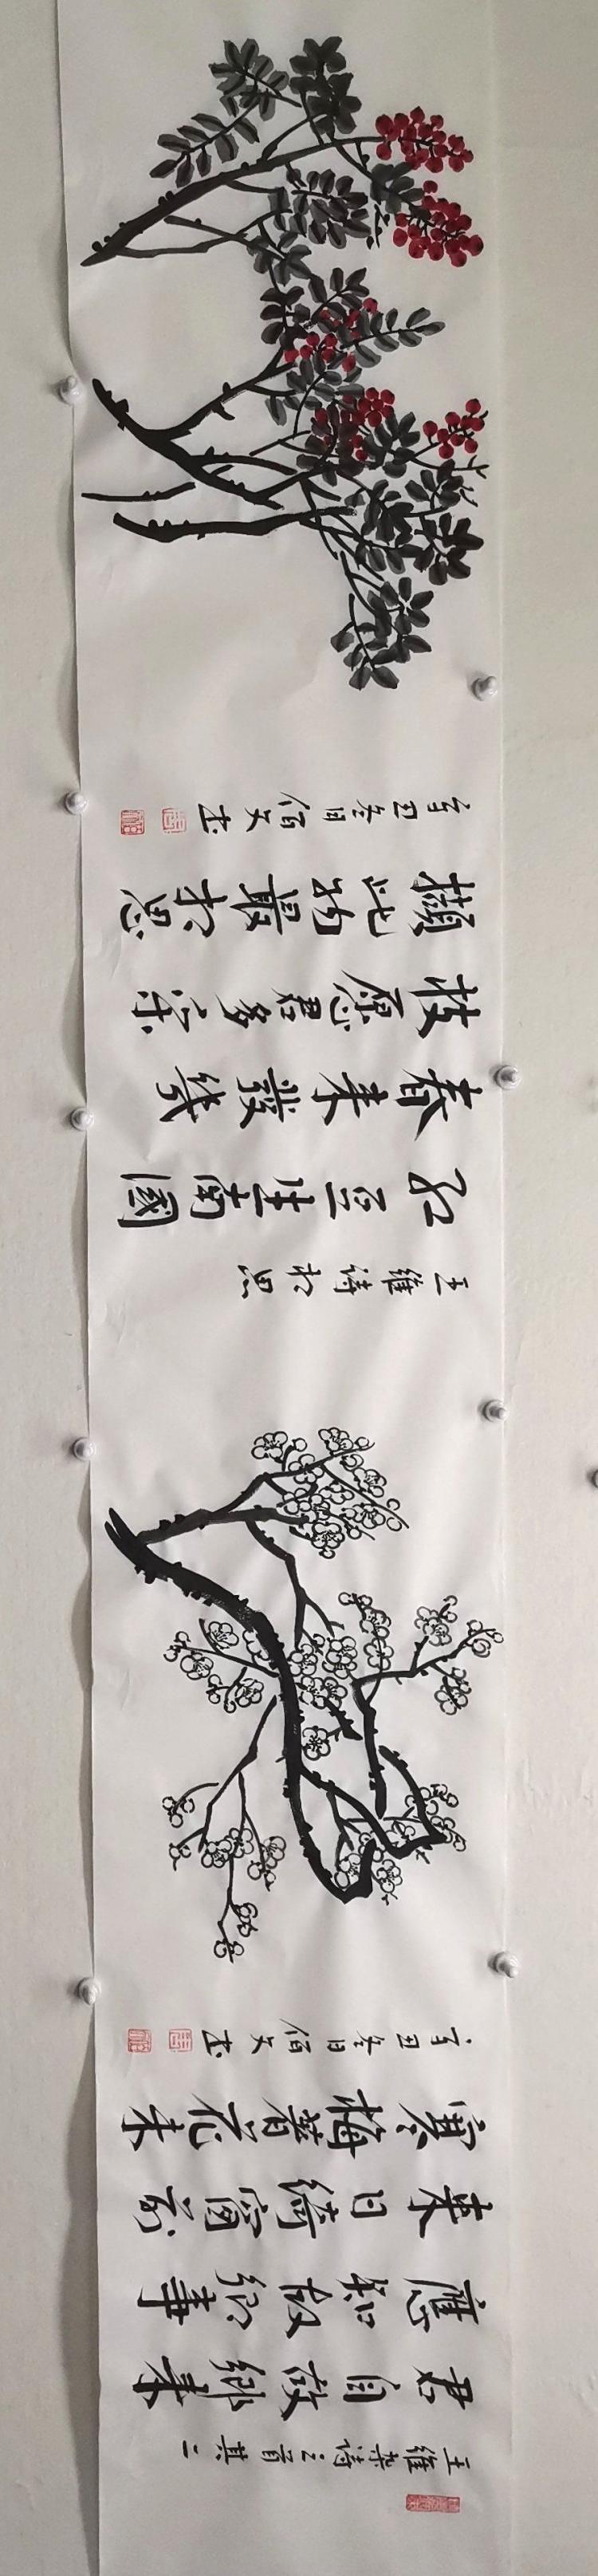 王維雜詩三首其二
君自故鄉来
應知故鄉事
来日綺窗前
寒梅著花未
辛丑冬日佰文書
王維詩相思
红豆生南國
春来發幾
枝愿君多采
擷此物最相思
辛丑冬日佰文書